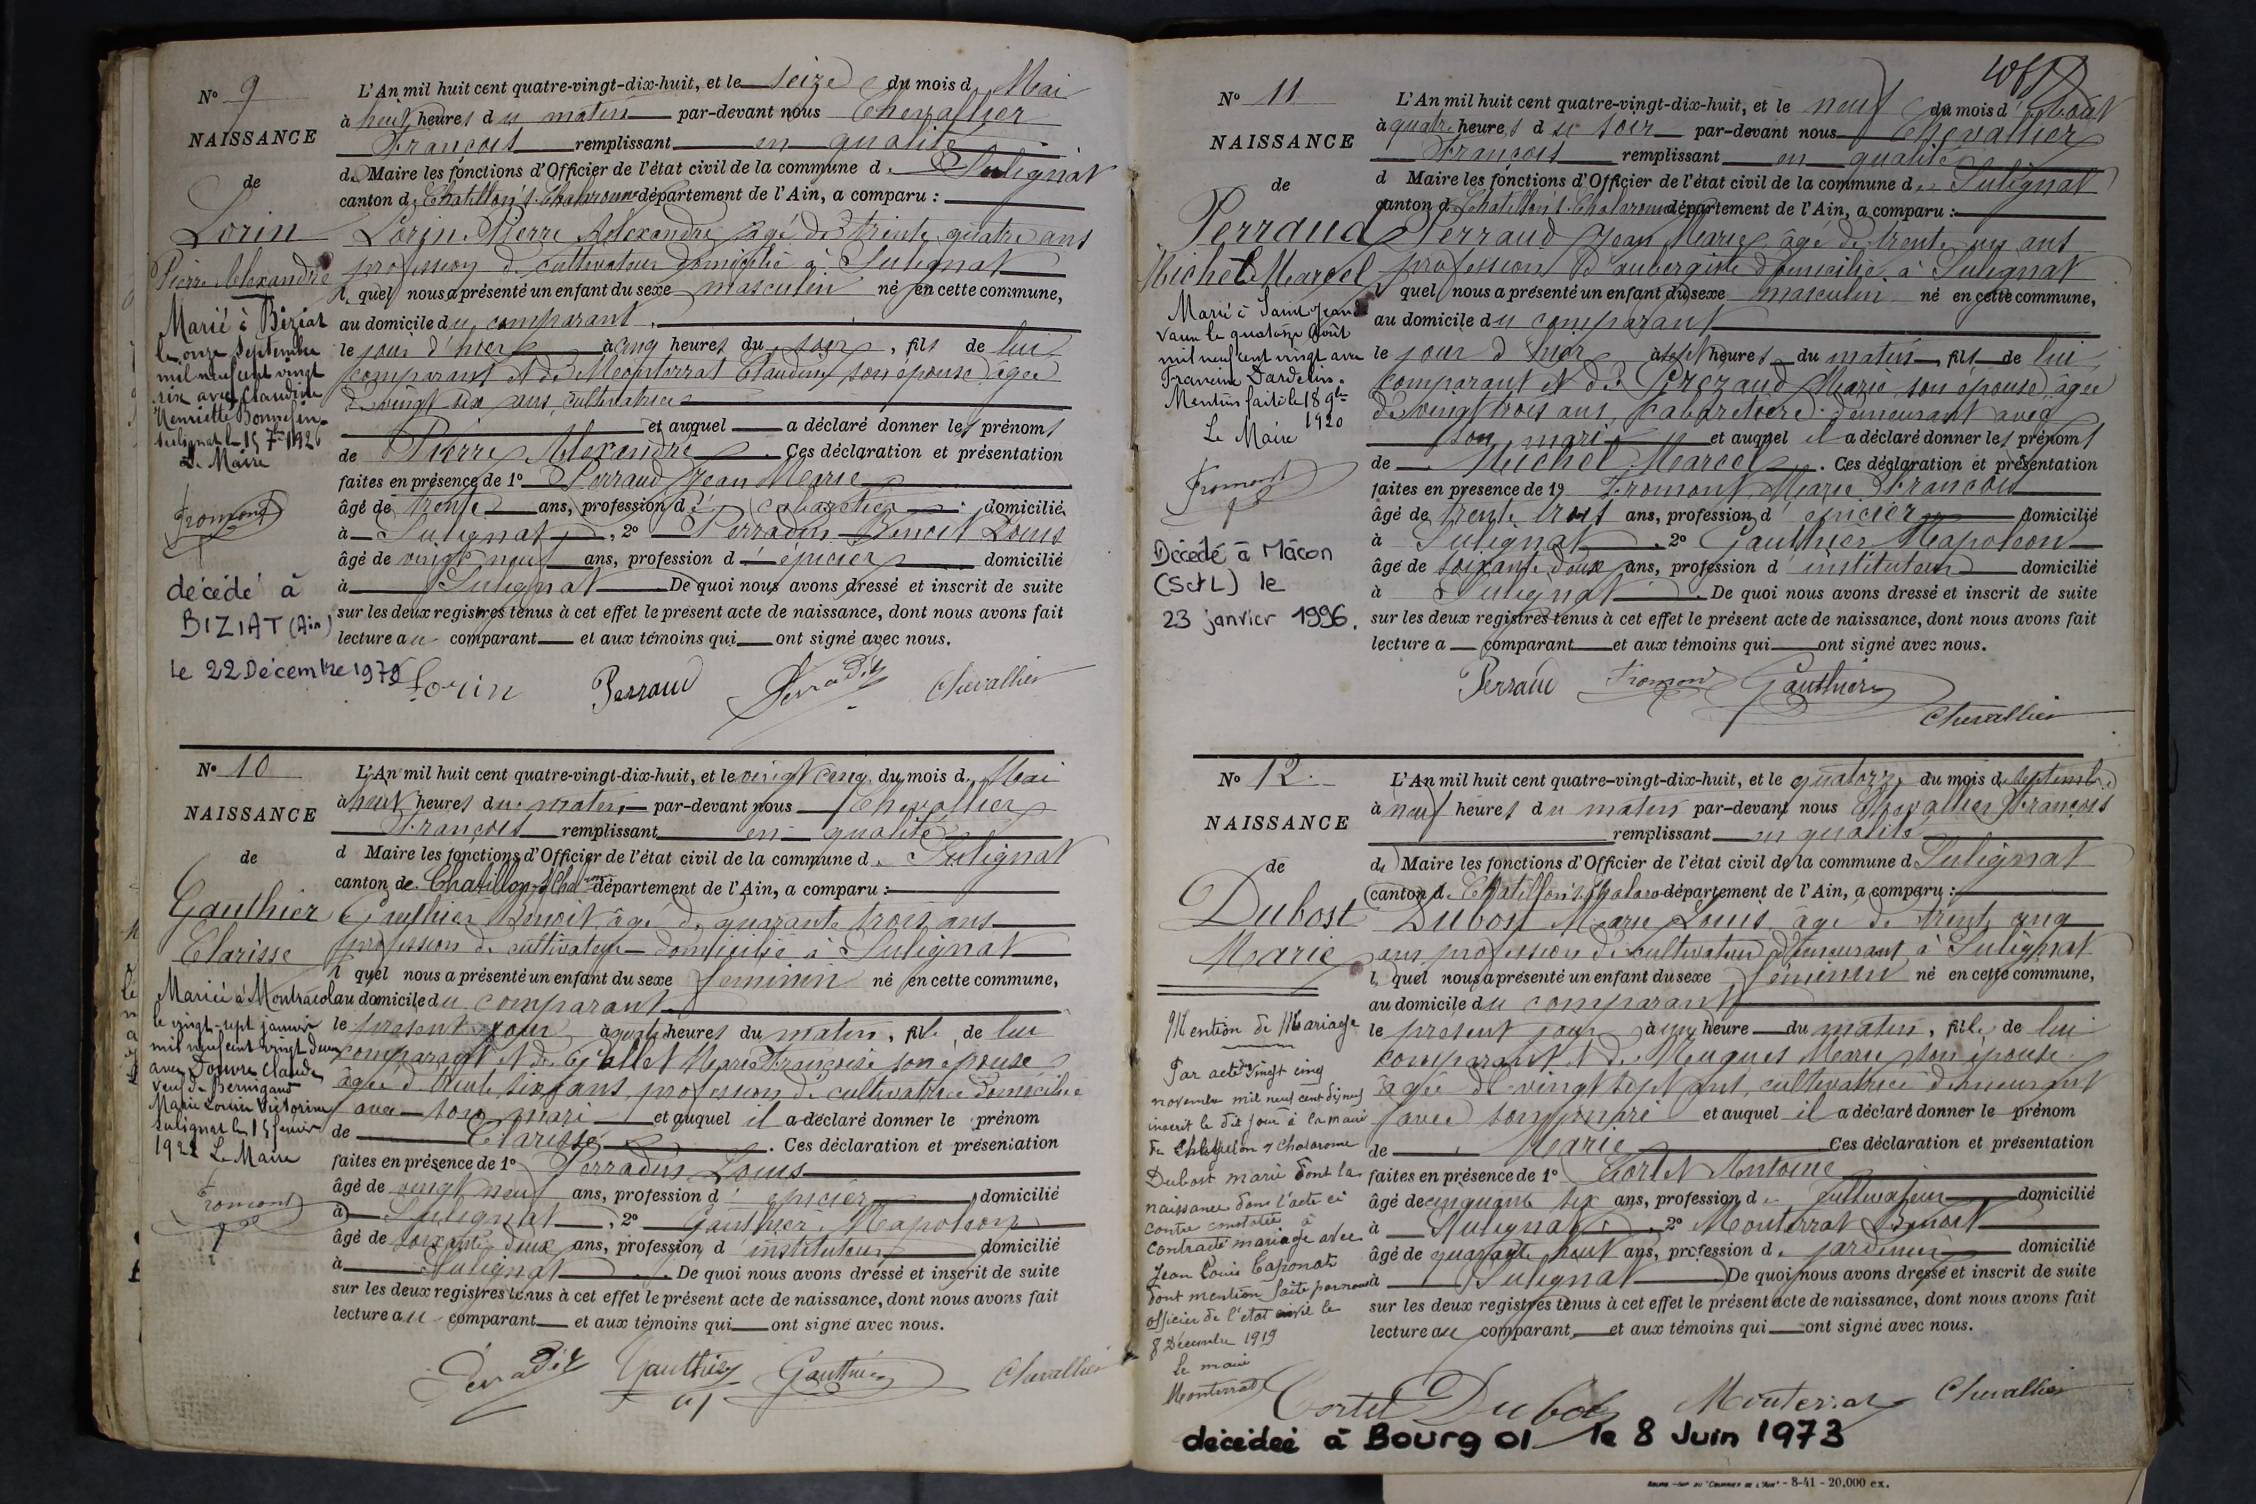 N° 9
NAISSANCE
de
Lorin
Pierre Alexandre
Marié à Biziat
le onze Septembre
mil neuf cent vingt
six avec Claudine
Henriette Bonnefin.
Sulignat le 15 7bre 1926
Le Maire
Fromont
décédé à
BIZIAT (Ain)
le 22 Décembre 1970
L'An mil huit cent quatre-vingt-dix-huit, et le seize du mois d Mai
à huit heures du matin par-devant nous Chevallier
François remplissant en qualité
de Maire les fonctions d'Officier de l'état civil de la commune de Sulignat
canton de Chatillon s Chalaronne département de l'Ain, a comparu :
Lorin Pierre Alexandre âgé de trente quatre ans
profession de cultivateur domicilié à Sulignat
l quel nous a présenté un enfant du sexe masculin né en cette commune,
au domicile du comparant
le jour d'hier à cinq heures du soir, fils de lui
comparant et de Monterrat Claudine son épouse âgée
de vingt six ans, cultivatrice
et auquel a déclaré donner les prénoms
de Pierre Alexandre. Ces déclaration et présentation
faites en présence de 1° Perraud Jean Marie
âgé de trente ans, profession de cabaretier domicilié
à Sulignat, 2° Perradin Benoit Louis
âgé de vingt neuf ans, profession d'épicier domicilié
à Sulignat De quoi nous avons dressé et inscrit de suite
sur les deux registres tenus à cet effet le présent acte de naissance, dont nous avons fait
lecture au comparant et aux témoins qui ont signé avec nous.
Lorin Perraud Perradin Chevallier
N° 10
NAISSANCE
de
Gauthier
Clarisse
Mariée à Montracol
le vingt-sept janvier
mil neuf cent vingt deux
avec Douvre Claude
veuf de Bernigaud
Marie Louise Victorine
Sulignat le 15 février
1922 Le Maire
Fromont
L'An mil huit cent quatre-vingt-dix-huit, et le vingt cinq du mois d Mai
à huit heures du matin par-devant nous Chevallier
François remplissant en qualité
d Maire les fonctions d'Officier de l'état civil de la commune d. Sulignat
canton de Chatillon s Chalaronne département de l'Ain, a comparu :
Gauthier Benoit âgé de quarante trois ans
profession de cultivateur domicilié à Sulignat
l quel nous a présenté un enfant du sexe féminin né en cette commune,
au domicile du comparant
le présent jour à quatre heures du matin, fille de lui
comparant et de Marie Françoise son épouse
âgée de trente six ans, profession de cultivatrice domiciliée
avec son mari et auquel il a déclaré donner le prénom
de Clarisse. Ces déclaration et présentation
faites en présence de 1° Perradin Louis
âgé de vingt neuf ans, profession d'épicier domicilié
à Sulignat, 2° Gauthier Napoléon
âgé de soixante deux ans, profession d instituteur domicilié
à Sulignat. De quoi nous avons dressé et inscrit de suite
sur les deux registres tenus à cet effet le présent acte de naissance, dont nous avons fait
lecture au comparant et aux témoins qui ont signé avec nous.
Perradin Gauthier Gauthier Chevallier
N° 11
NAISSANCE
de
Perraud
Michel Marcel
Marié à Saint Jean
le quatorze Août
mil neuf cent vingt avec
Francine Dardelin.
Mention faite le 18 9bre
1920
Le Maire
Fromont
Décédé à Mâcon
(S et L) le
23 janvier 1996.
L'An mil huit cent quatre-vingt-dix-huit, et le neuf du mois d'Août
à quatre heures du soir par-devant nous Chevallier
François remplissant en qualité
d Maire les fonctions d'Officier de l'état civil de la commune de Sulignat
canton de Chatillon s Chalaronne département de l'Ain, a comparu :
Perraud Jean Marie âgé de trente un ans
profession d'aubergiste domicilié à Sulignat
quel nous a présenté un enfant du sexe masculin né en cette commune,
au domicile du comparant
le jour d'hier à sept heures du matin, fils de lui
comparant et de Marie son épouse âgée
de vingt trois ans, cabaretière demeurant avec
son mari et auquel il a déclaré donner les prénoms
de Michel Marcel. Ces déclaration et présentation
faites en présence de 1° Fromont Marie François
âgé de trente trois ans, profession d'épicier domicilié
à Sulignat, 2° Gauthier Napoléon
âgé de soixante deux ans, profession d instituteur domicilié
à Sulignat. De quoi nous avons dressé et inscrit de suite
sur les deux registres tenus à cet effet le présent acte de naissance, dont nous avons fait
lecture a comparant et aux témoins qui ont signé avec nous.
Perraud Fromont Gauthier
Chevallier
N° 12.
NAISSANCE
de
Dubost
Marie
Mention de Mariage
Par acte du vingt cinq
novembre mil neuf cent dix neuf
inscrit le dit jour à la mairie
de Chatillon s Chalaronne
Dubost marie dont la
naissance dans l'acte ci
contre constatée a
contracté mariage avec
Jean Louis Caponat
dont mention faite par nous
officier de l'état civil le
8 Décembre 1919
Le maire
Monterrat
L'An mil huit cent quatre-vingt-dix-huit, et le quatorze du mois de Septembre
à neuf heures du matin par-devant nous Chevallier François
remplissant en qualité
de Maire les fonctions d'Officier de l'état civil de la commune d Sulignat
canton de Chatillon s Chalaro département de l'Ain, a comparu :
Dubost Marie Louis âgé de trente cinq
ans, profession de cultivateur demeurant à Sulignat
l quel nous a présenté un enfant du sexe féminin né en cette commune,
au domicile du comparant
le présent jour à une heure du matin, fille de lui
comparant et de Mugues Marie son épouse
âgée de vingt sept ans, cultivatrice demeurant
avec son mari et auquel il a déclaré donner le prénom
de Marie Ces déclaration et présentation
faites en présence de 1° Cortet Antoine
âgé de cinquante six ans, profession de cultivateur domicilié
à Sulignat, 2° Monterrat Benoit
âgé de quarante huit ans, profession de jardinier domicilié
à Sulignat De quoi nous avons dressé et inscrit de suite
sur les deux registres tenus à cet effet le présent acte de naissance, dont nous avons fait
lecture au comparant, et aux témoins qui ont signé avec nous.
Cortet Dubost Monterrat Chevallier
décédée à Bourg 01 le 8 Juin 1973
BOURG - IMP. DU "COURRIER DE L'AIN" - 8-41 - 20.000 ex.